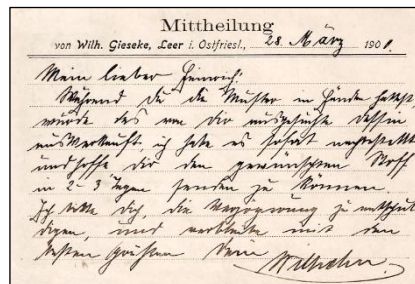 Mittheilung
von Wilh. Gieseke, Leer i. Ostfriesl., 28. März 1901.
Mein lieber Heinrich!
Während Du die Muster in Händen hattest
wurde das von Dir ausgesuchte Dessin
ausverkauft, ich habe es sofort nachbestellt
und hoffe Dir den gewünschten Stoff
in 2-3 Tagen senden zu können.
Ich bitte Dich, die Verzögerung zu entschul-
digen, und verbleibe mit den
besten Grüßen Dein
Wilhelm.